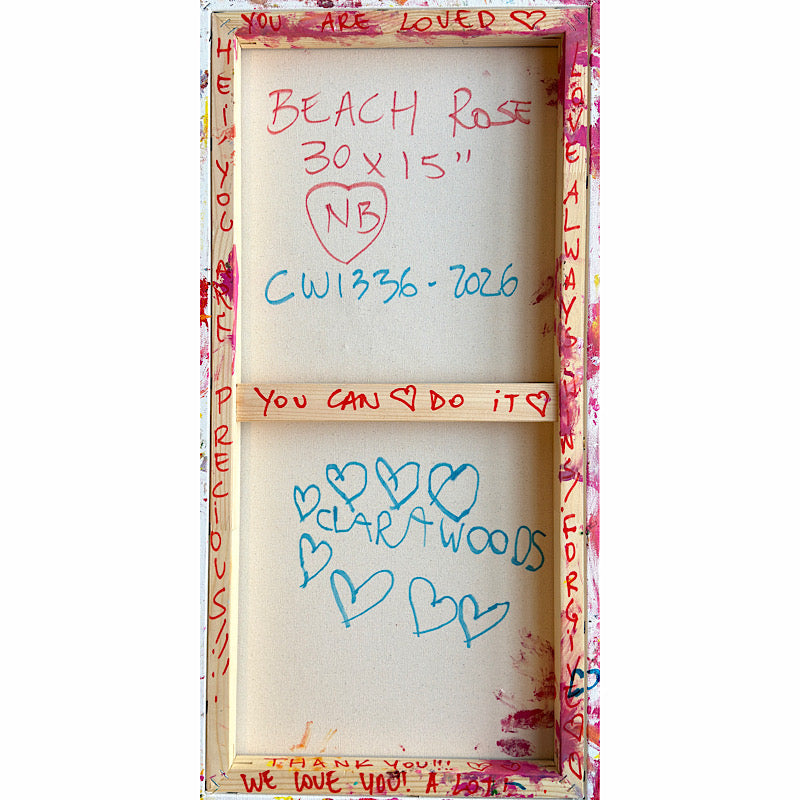 YOU ARE LOVED
HEi YOU ARE PRECiOUS!!!
BEACH ROSE
30 x 15"
NB
CW1336-2026
YOU CAN DO iT
CLARA WOODS
LOVE ALWAYS ALWAYS FORGiVE
THANK YOU!!!
WE LOVE YOU! A LOT!